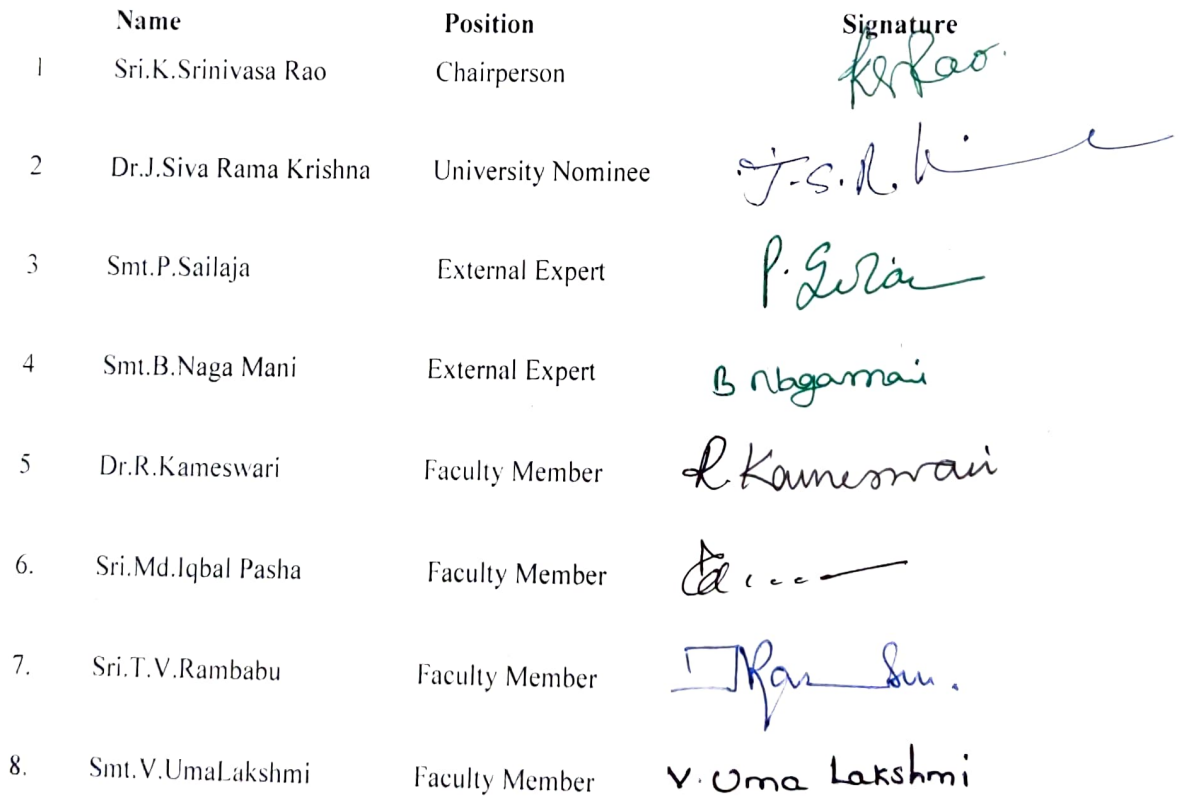 Name Position Signature
1 Sri.K.Srinivasa Rao Chairperson KSRao.
2 Dr.J.Siva Rama Krishna University Nominee J.S.R.
3 Smt.P.Sailaja External Expert P.
4 Smt.B.Naga Mani External Expert B Nagamani
5 Dr.R.Kameswari Faculty Member R.Kameswari
6. Sri.Md.Iqbal Pasha Faculty Member
7. Sri.T.V.Rambabu Faculty Member
8. Smt.V.UmaLakshmi Faculty Member V. Uma Lakshmi